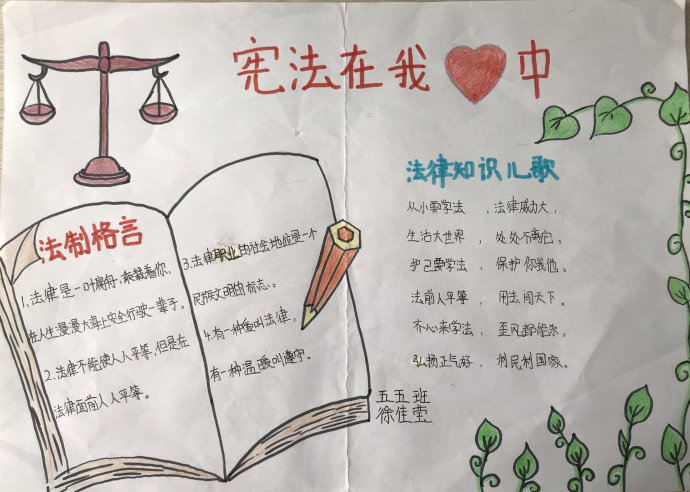 宪法在我中
法制格言
1.法律是一叶扁舟,乘载着你,
在人生漫漫大海上安全行驶一辈子。
2.法律不能使人人平等,但是在
法律面前人人平等。
3.法律职业的社会地位是一个
民族文明的标志。
4.有一种爱叫法律,
有一种温暖叫遵守。
法律知识儿歌
从小要学法,法律威力大,
生活大世界,处处不离它。
护己要学法,保护你我他。
法前人平等,用法闯天下。
齐心来学法,歪风都能杀。
弘扬正气好,利民利国家。
五五班
徐佳莹